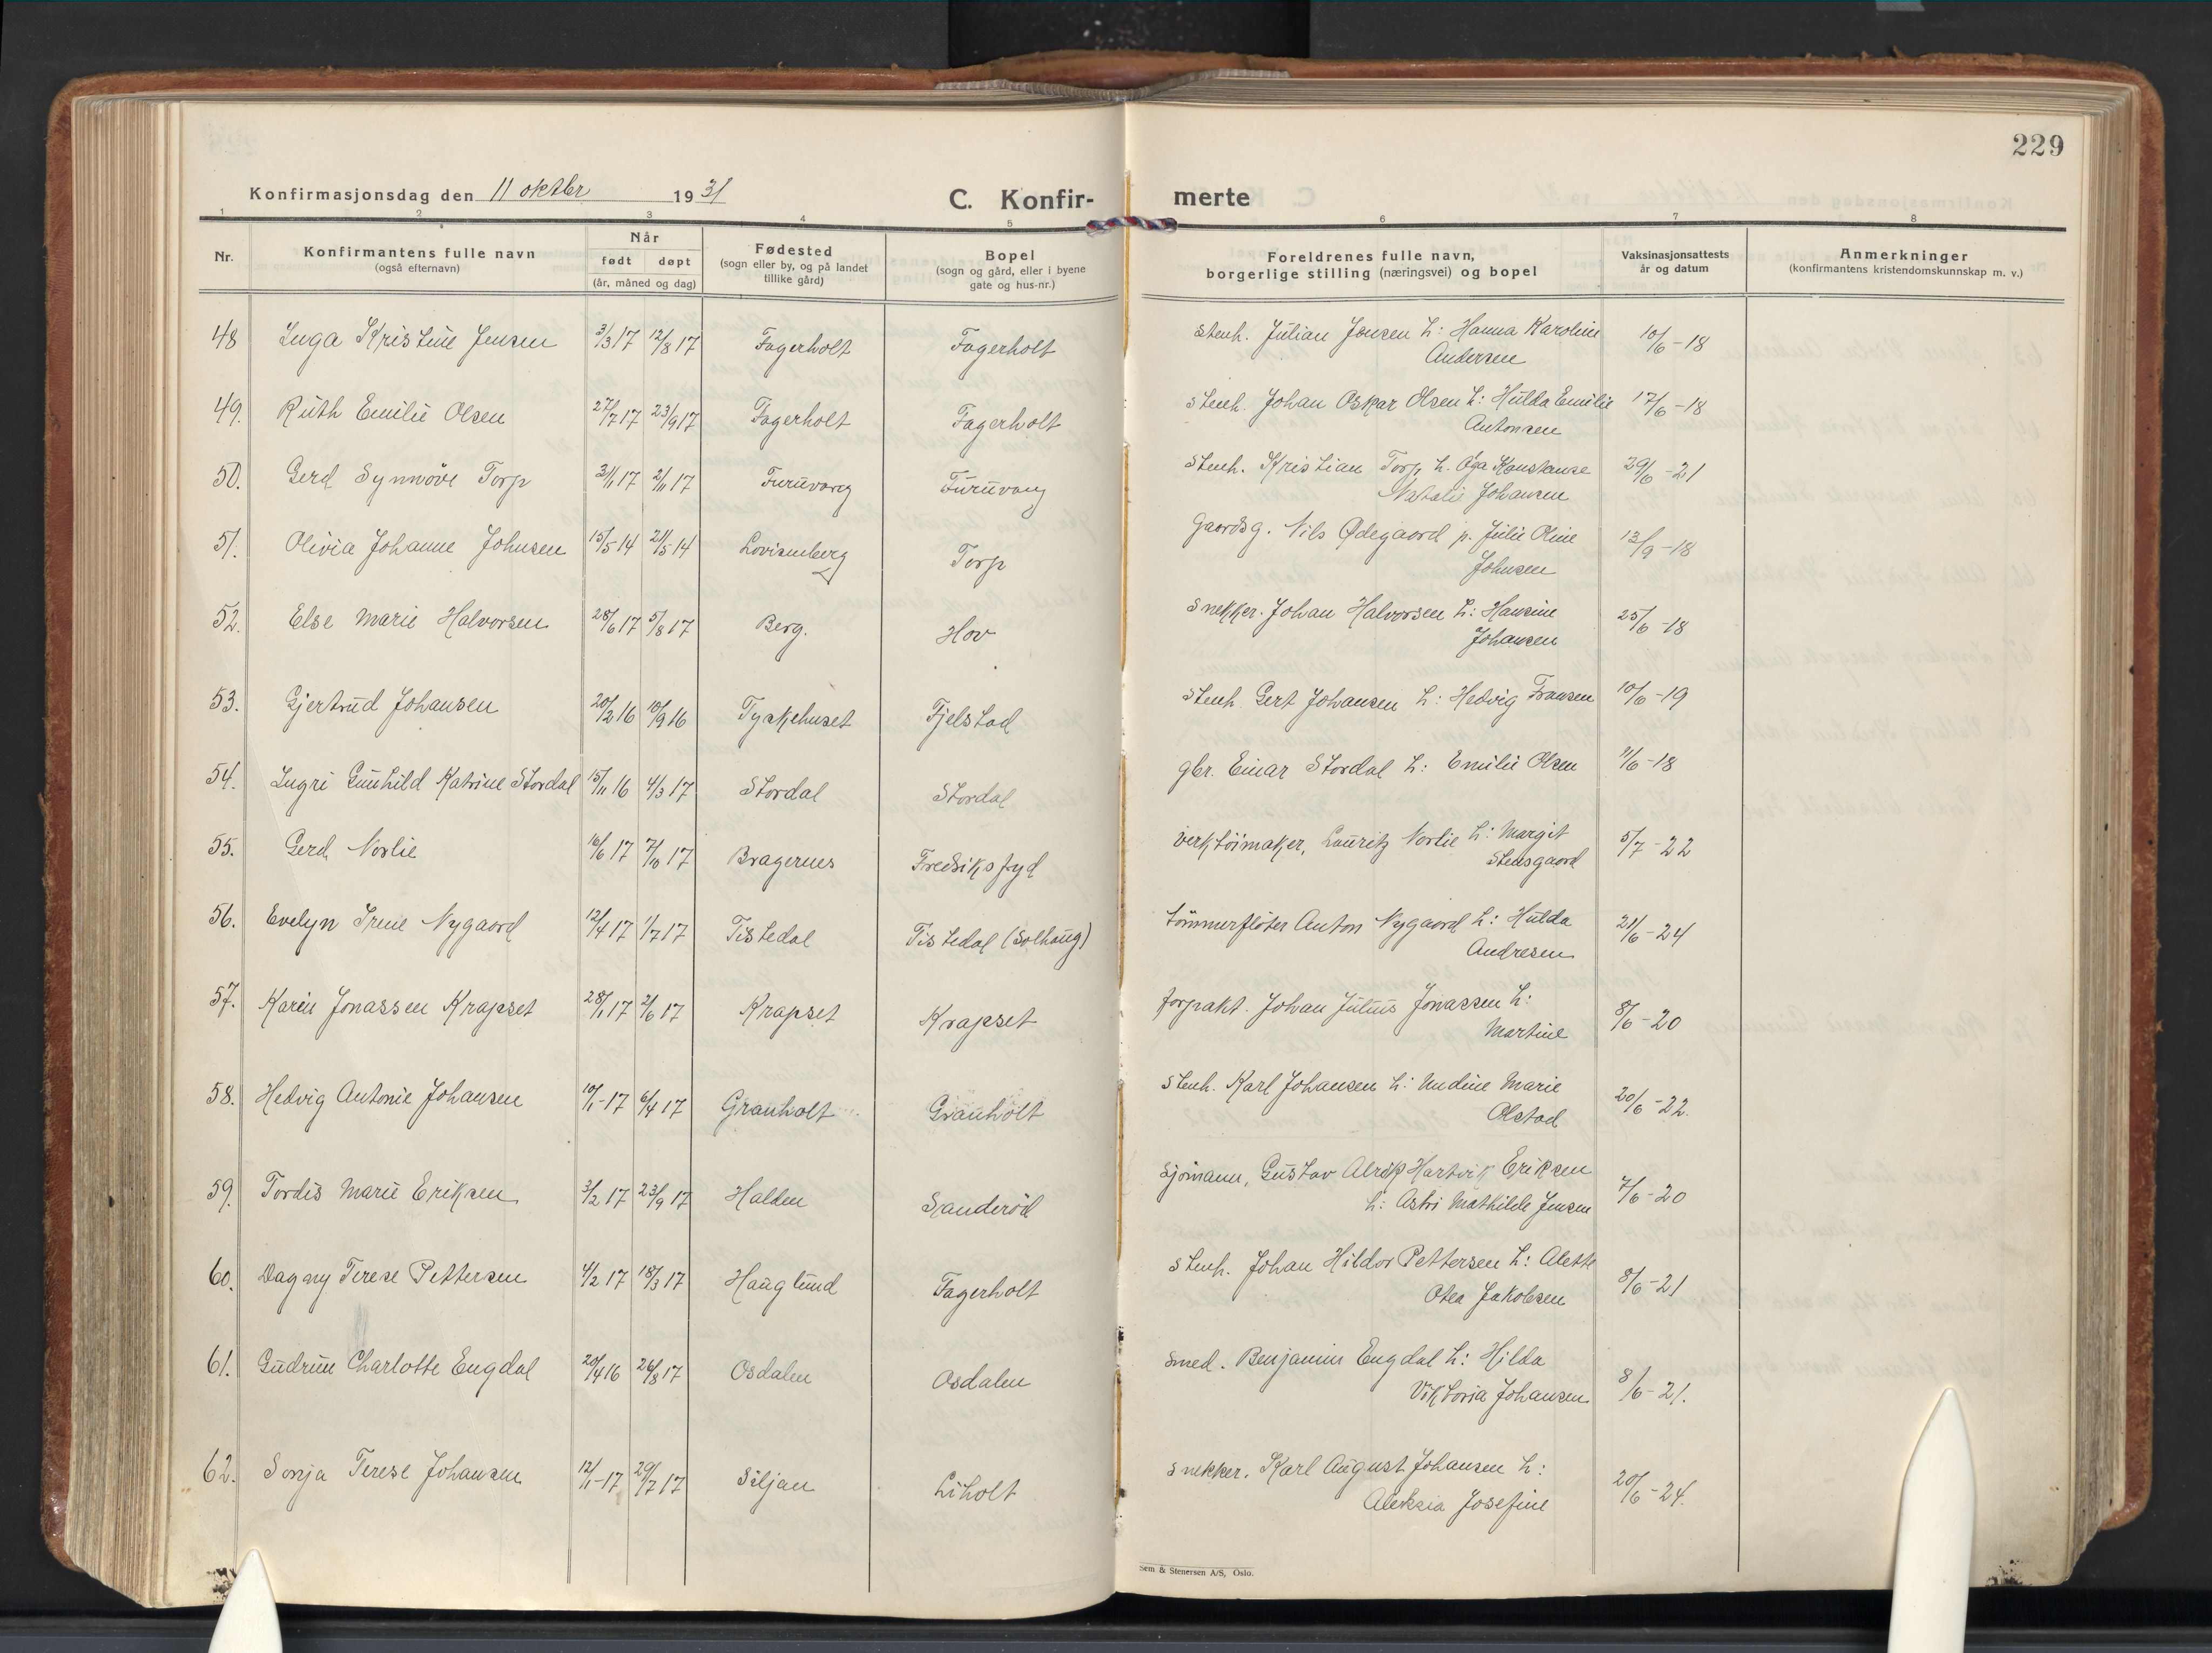 229
Konfirmasjonsdag den 11 oktbr 1931
C. Konfir- merte
1 2 3 4 5 6 7 8
Nr.
Konfirmantens fulle navn
(også efternavn)
Når
født døpt
(år, måned og dag)
Fødested
(sogn eller by, og på landet
tillike gård)
Bopel
(sogn og gård, eller i byene
gate og hus-nr.)
Foreldrenes fulle navn,
borgerlige stilling (næringsvei) og bopel
Vaksinasjonsattests
år og datum
Anmerkninger
(konfirmantens kristendomskunnskap m. v.)
48 Inga Kristine Jensen 3/3 17 12/8 17 Fagerholt Fagerholt Stenh. Julian Jensen h: Hanna Karoline 10/6-18
Andersen
49. Ruth Emilie Olsen 27/7 17 23/9 17 Fagerholt Fagerholt Stenh. Johan Oskar Olsen h: Hulda Emilie 17/6-18
Antonsen
50. Gerd Synnöve Torp 2/11 17 Furuvang Furuvang Stenh. Kristian Torp h. Konstanse 29/6-21
Natali Johansen
51. Olivia Johanne Johnsen 15/5 14 21/5 14 Lovisenberg Torp Gaardsg. Nils Ødegaard p. Julie Oline 13/9-18
Johnsen
52. Else Marie Halvorsen 28/6 17 5/8 17 Berg. Hov Snekker. Johan Halvorsen h: Hansine 25/6-18
Johansen
53. Gjertrud Johansen 20/2 16 10/9 16 Tyskehuset Fjelstad Stenh. Gert Johansen h: Hedvig Fransen 10/6-19
54. Ingri Gunhild Katrine Stordal 15/11 16 4/3 17 Stordal Stordal gbr. Einar Stordal h: Emilie Olsen 11/6-18
55. Gerd Norlie 16/6 17 7/10 17 Bragernes Fredriksfryd Verktöimaker, Lauritz Norlie h: Margit 5/7-22
Stensgaard
56. Evelyn Irene Nygaard 12/4 17 1/7 17 Tistedal Tistedal (Solhaug) tömmerflöter Anton Nygaard h: Hulda 21/6-24
Andresen
57. Karin Jonassen Krapset 28/1 17 2/6 17 Krapset Krapset forpakt. Johan Julius Jonassen h: 8/6-20
Martine
58. Hedvig Antonie Johansen 10/1-17 6/4 17 Granholt Granholt Stenh. Karl Johansen h: Undine Marie 20/6-22.
Olstad
59. Tordis Marie Eriksen 3/2 17 23/9 17 Halden Sanderöd Sjömann, Gustav Alrik Hartvik Eriksen 7/6-20
h: Astri Mathilde Jensen
60. Dagny Terese Pettersen 4/2 17 18/3 17 Hauglund Fagerholt Stenh. Johan Hildor Pettersen h: Alette 8/6-21
Otea Jakobsen
61. Gudrun Charlotte Engdal 20/4 16 26/8 17 Osdalen Osdalen Smed. Benjamin Engdal h: Hilda 8/6-21.
Viktoria Johansen
62. Sonja Terese Johansen 12/1-17 29/7 17 Siljan Liholt Snekker. Karl August Johansen h: 20/6-24.
Aleksia Josefine
Sem & Stenersen A/S, Oslo.